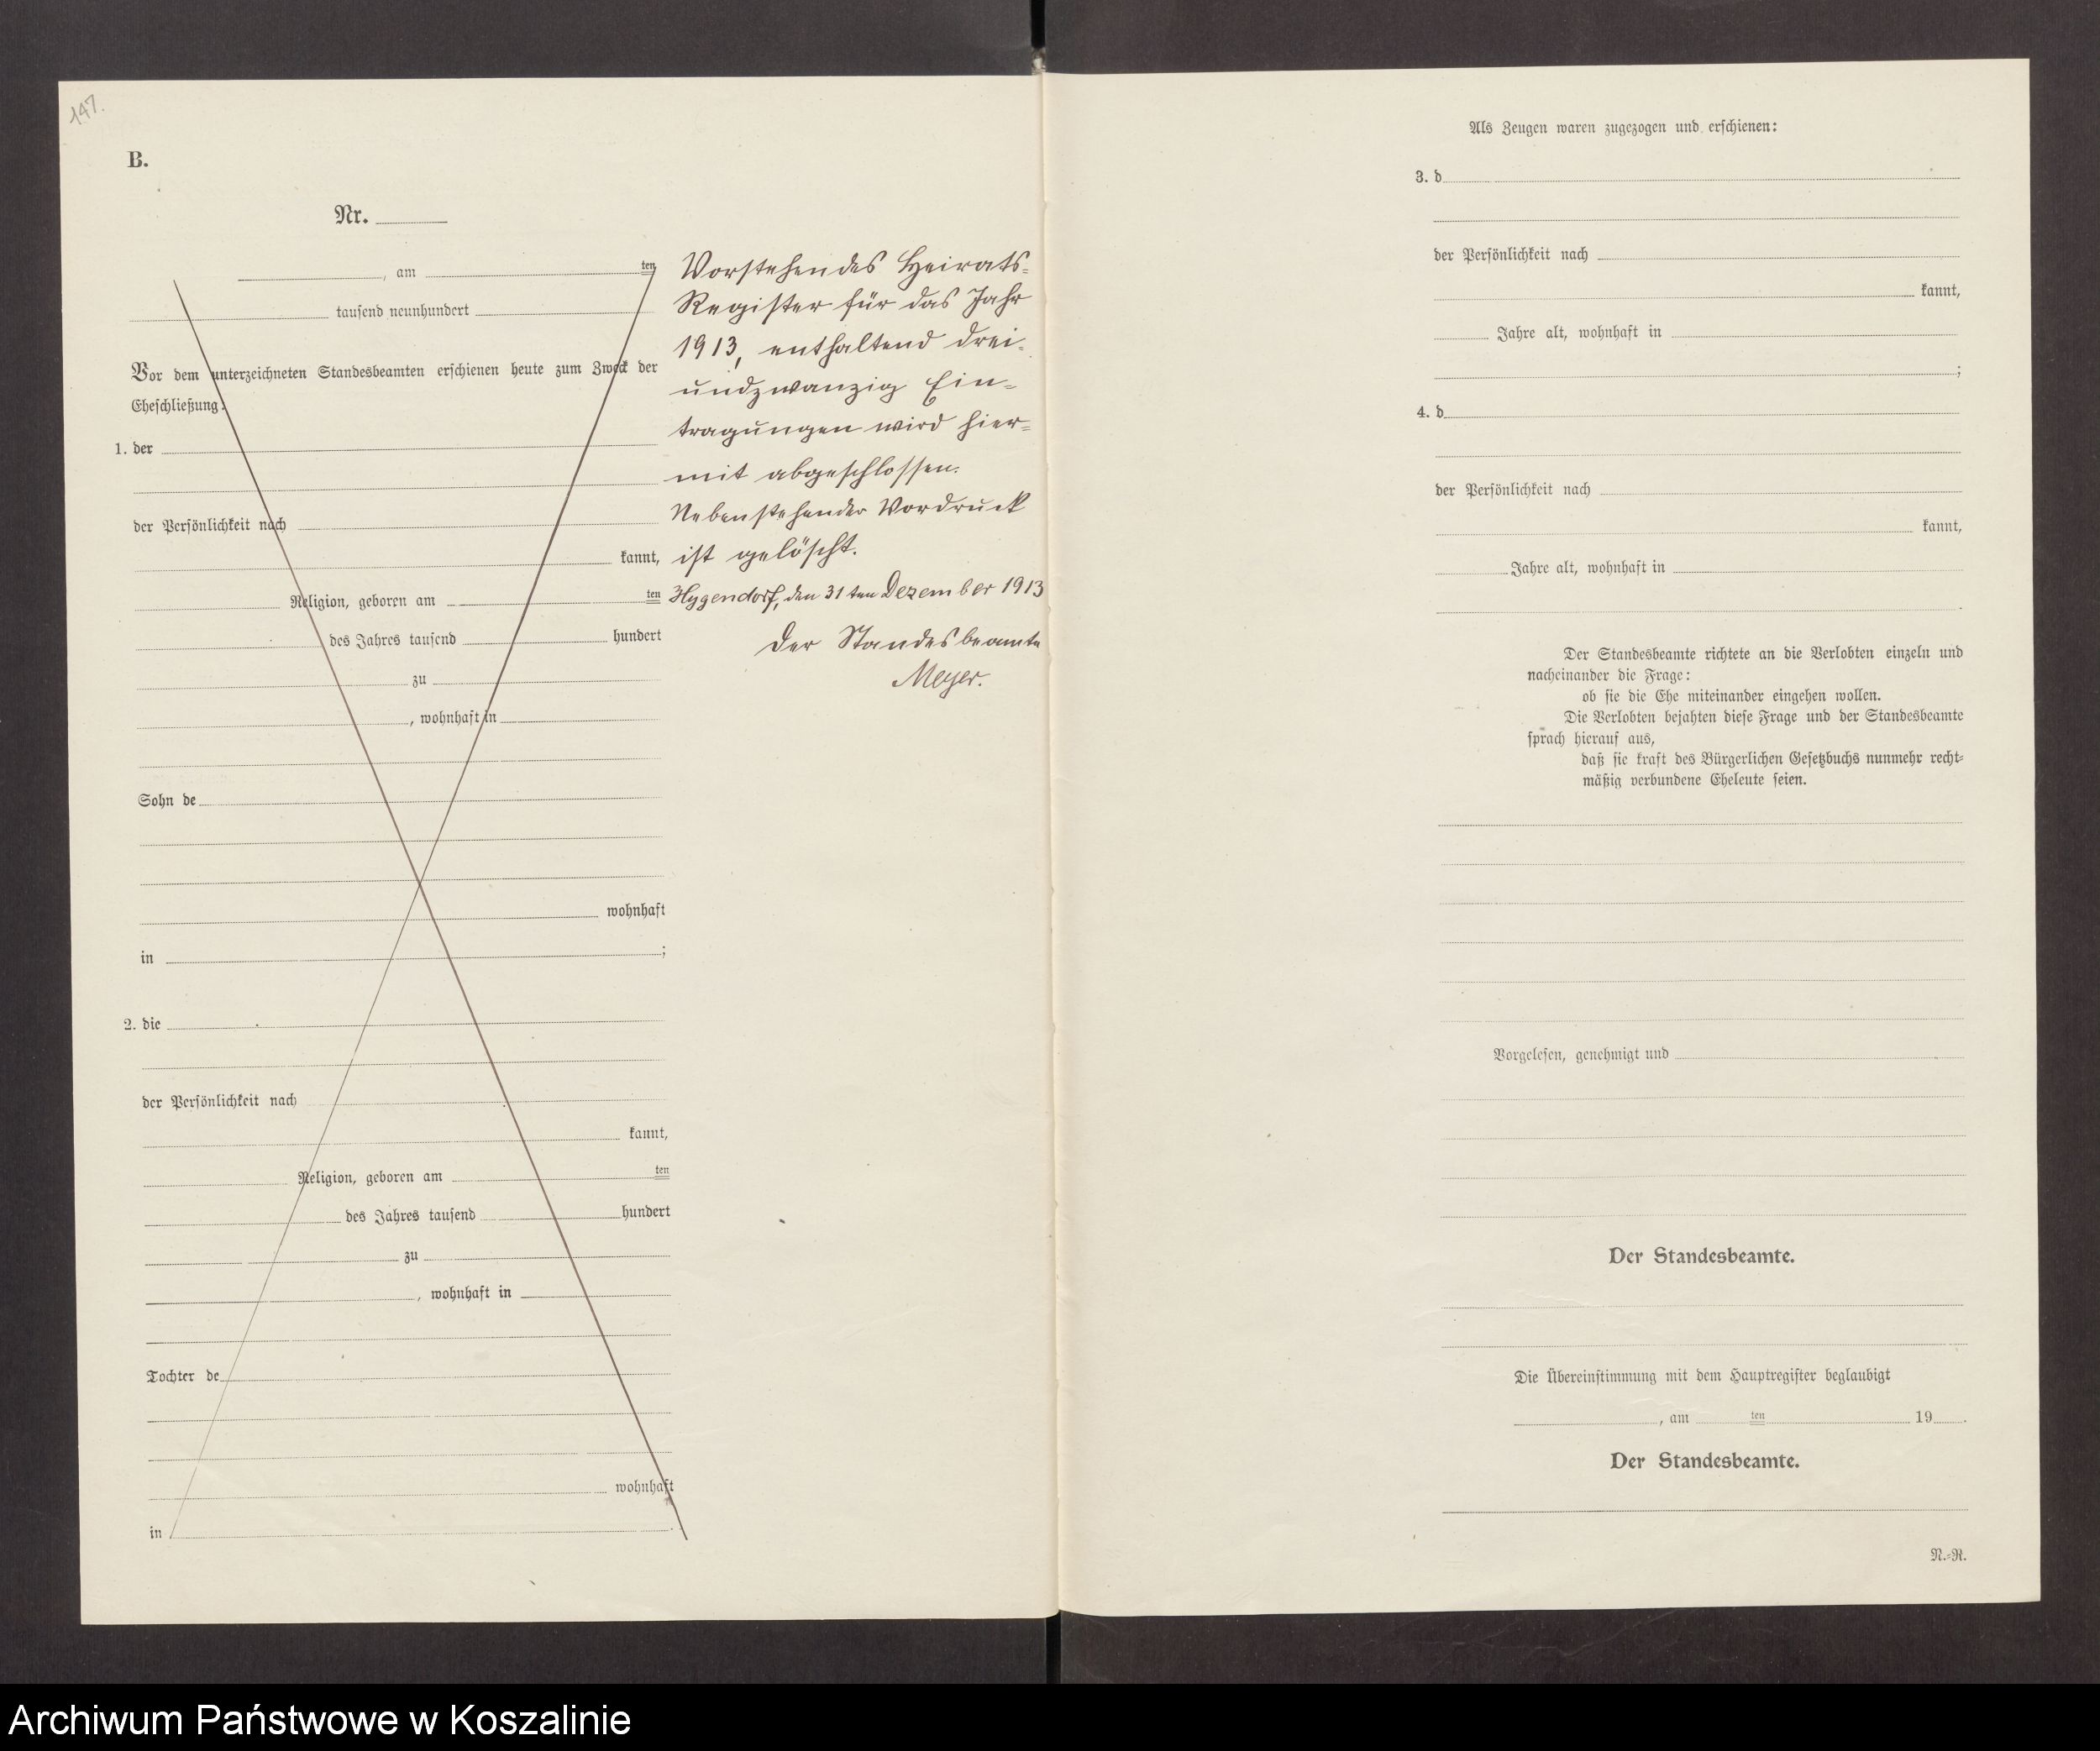 147.
B.
Nr.
, am ten
tausend neunhundert
Vor dem unterzeichneten Standesbeamten erschienen heute zum Zweck der
Eheschließung:
1. der
der Persönlichkeit nach
kannt,
Religion, geboren am ten
des Jahres tausend hundert
zu
, wohnhaft in
Sohn de
wohnhaft
in ;
2. die
der Persönlichkeit nach
kannt,
Religion, geboren am ten
des Jahres tausend hundert
zu
, wohnhaft in
Tochter de
wohnhaft
in .
Vorstehendes Heirats-
Register für das Jahr
1913, enthaltend drei-
undzwanzig Ein-
tragungen wird hier-
mit abgeschlossen.
Nebenstehender Vordruck
ist gelöscht.
den 31ten Dezember 1913
Der Standesbeamte
Meyer.
Als Zeugen waren zugezogen und erschienen:
3. d
der Persönlichkeit nach
kannt,
Jahre alt, wohnhaft in
;
4. d
der Persönlichkeit nach
kannt,
Jahre alt, wohnhaft in
.
Der Standesbeamte richtete an die Verlobten einzeln und
nacheinander die Frage:
ob sie die Ehe miteinander eingehen wollen.
Die Verlobten bejahten diese Frage und der Standesbeamte
sprach hierauf aus,
daß sie kraft des Bürgerlichen Gesetzbuchs nunmehr recht-
mäßig verbundene Eheleute seien.
Vorgelesen, genehmigt und
Der Standesbeamte.
Die Übereinstimmung mit dem Hauptregister beglaubigt
, am ten 19 .
Der Standesbeamte.
N.-R.
Archiwum Państwowe w Koszalinie